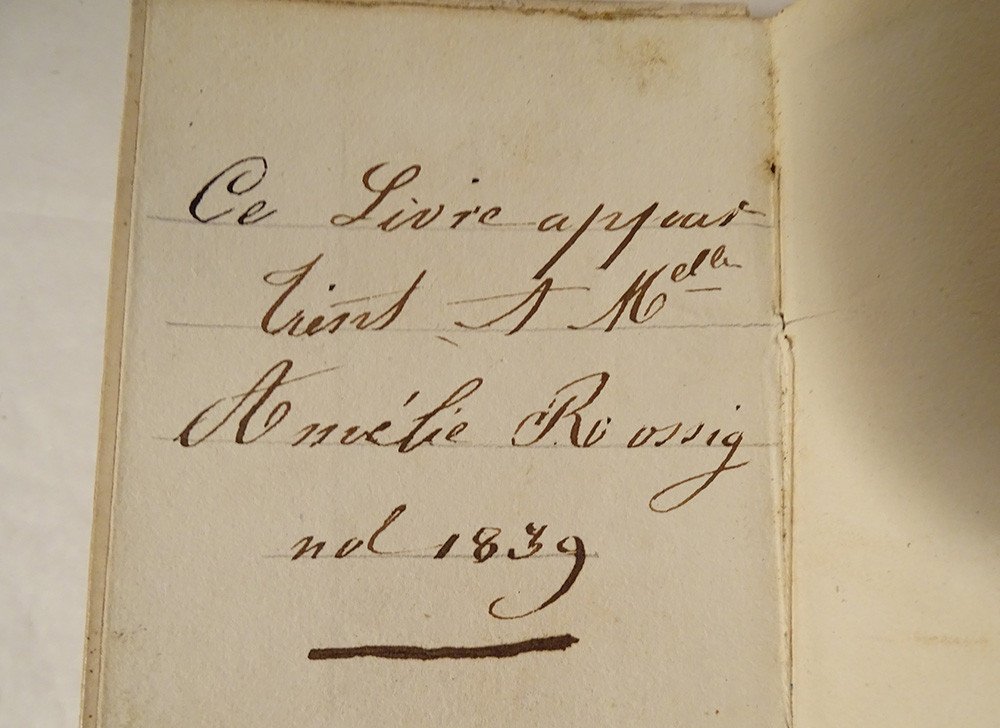 Ce Livre appar
tient A M<sup>elle</sup>
Amélie Roossig
nol 1839